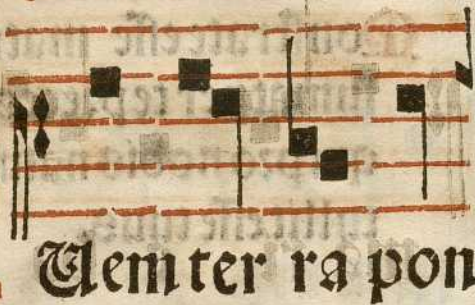 Uem ter ra pon